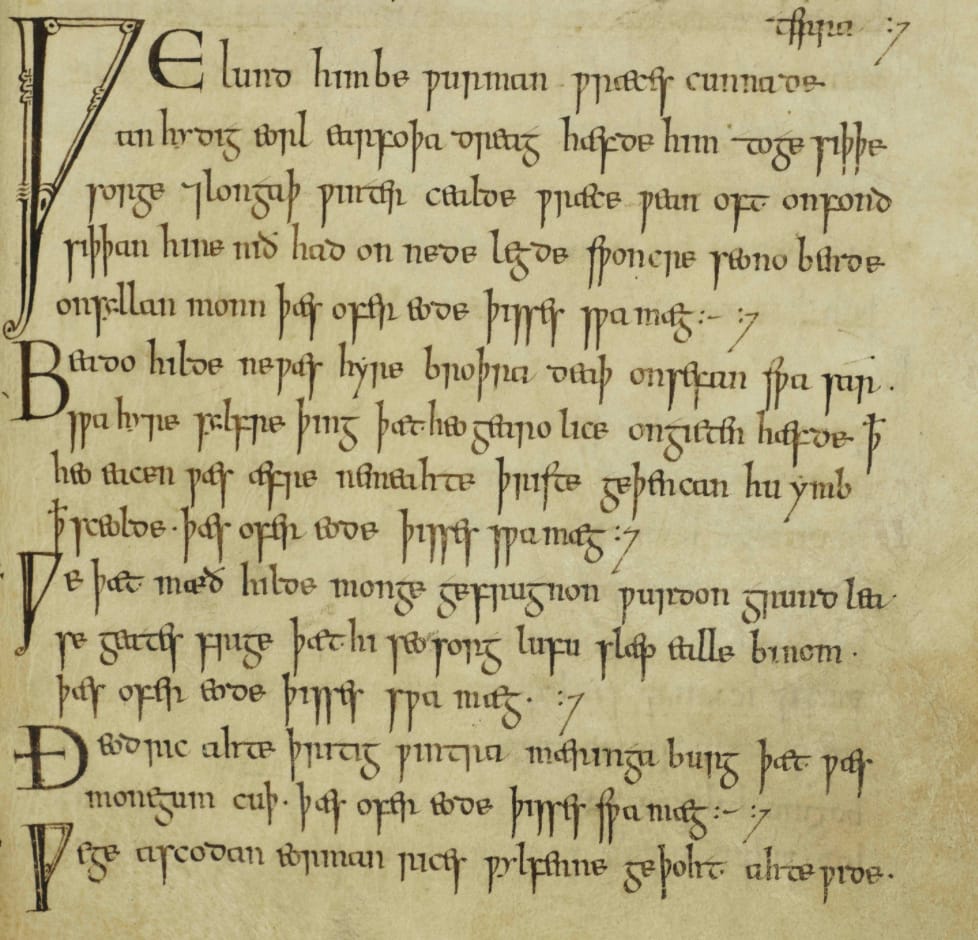 terra :7
ǷElund him be ƿurman ƿræces cunnade
an hydig eorl earfoþa dreag hæfde him to ge siþþe
sorge ⁊longaþ ƿinter cealde ƿræce ƿean oft onfond
siþþan hine nið had on nede legde sƿoncre seono bende
onsyllan monn þæs ofer eode þisses sƿa mæg:- :7
Beado hilde ne ƿæs hyre broþra deaþ onsefan sƿa sar.
sƿa hyre sylfre þing þæt heo gearo lice ongieten hæfde ꝥ
heo eacen ƿæs æfre nemeahte þriste geþencan hu ymb
ꝥ sceolde· þæs ofer eode þisses sƿa mæg :7
Ƿe þæt mæð hilde monge gefrugnon ƿurdon grund lea
se geates frige þæt hi seo sorg lufu slæp ealle binom·
þæs ofer eode þisses sƿa mæg· :7
Ðeodric ahte þritig ƿintra mæringa burg þæt ƿæs
monegum cuþ· þæs ofer eode þisses sƿa mæg:- :7
Ƿe ge ascodan eorman rices ƿylfenne geþoht ahte ƿide·